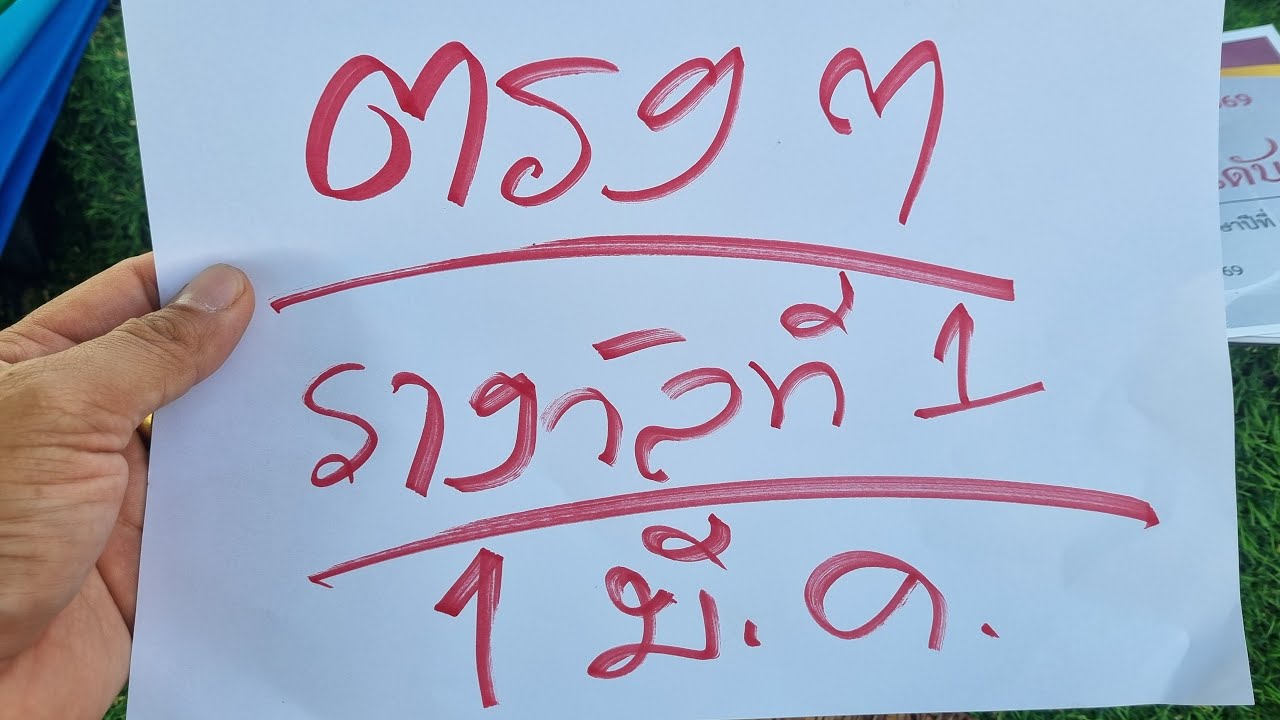 ตรง ๆ
รางวัลที่ 1
1 มี.ค.
69
ษาปีที่
69